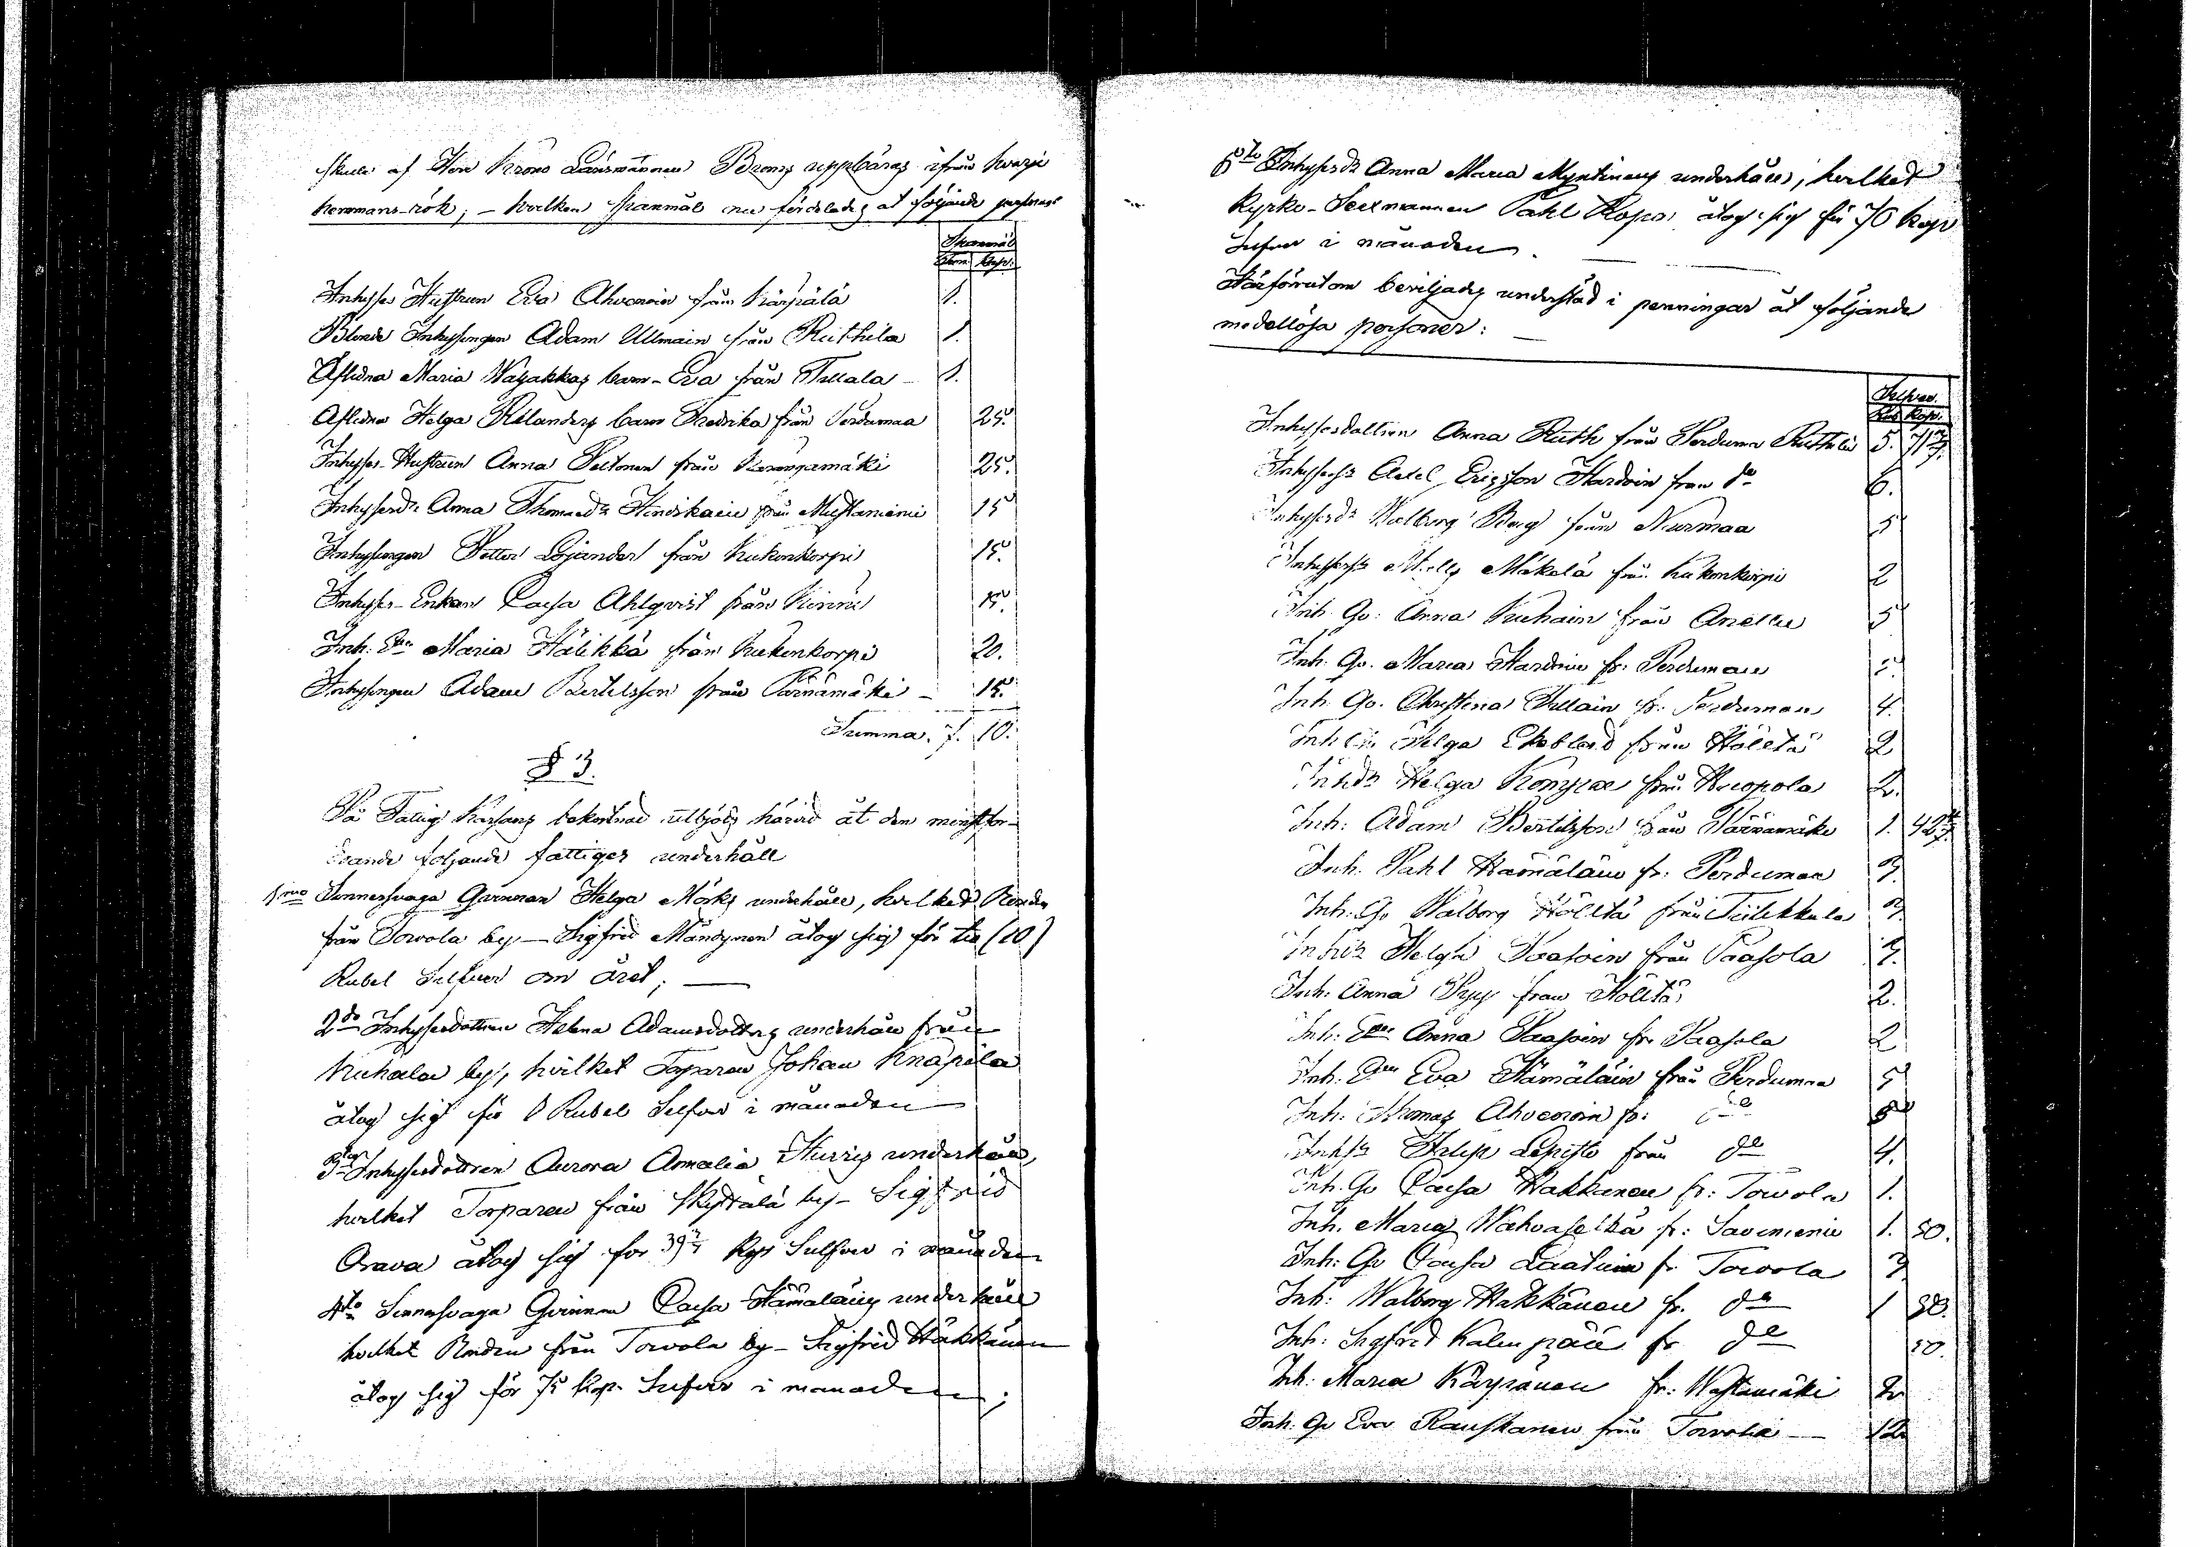 skull af Herr Krono Länsmannen Broms uppbäras ifrån hvarje
hemmans-rök; – hvilken spanmål nu fördelades at följande personer
Spanmål
Tun. Kap:
Inhyses Hustrun Eva Ahvonin från Kärpälä 1.
Blinde Inhysingen Adam Ullmain från Ruthila 1.
Aflidna Maria Wasakkas barn – Eva från Tillala – 1.
Aflidna Helga Rålanders barn Fredrika från Perdumaa 25.
Inhyses-Hustrun Anna Peltonen från Korongamäki 25.
Inhysesd:r Anna Thomæd:r Hindikain från Mustaniemi 15
Inhysingen Petter Gjander från Kukonkorpi 15.
Inhyses-Enkan Caisa Ahlqvist från Kinni 15.
Inh: E:n Maria Hälikkä från Kukonkorpi 20.
Inhysingen Adam Bertelsson från Pärnämäki – 15.
Summa. 7. 10.
§ 3.
På Fattig Kassans bekostnad utbjöds härvid åt den minstfor-
drande följande fattiges underhåll
1:mo Sinnessvaga Qvinnan Helga Mörks underhåll, hvilket Bonden
från Towola by – Sigfrid Mändynen åtog sig för tio (10)
Rubel Silfver om året; –
2:do Inhysesdottren Helena Adamsdotters underhåll från
Kuhala by, hvilket Torparen Johan Knapila
åtog sig för 1 Rubel Silfver i månaden
3:tio Inhysesdottren Aurora Amalia Hurrig underhåll,
hvilket Torparen från Skyttälä by – Sigfrid
Orava åtog sig for 39 Kop Silfver i månaden
4:to Sinnessvaga Qvinnan Caisa Hämäläins underhåll
hvilket Bonden från Towola by – Sigfrid Häkkänen
åtog sig för 75 Kop. Silfver i månaden;
5:to Inhysesd:r Anna Maria Myntinens underhåll, hvilket
Kyrko-Sexmannen Pahl Kopo åtog sig för 70 Kop
Silfver i månaden.
Härförutom beviljades understöd i penningar åt följande
medellösa personer: –
Silfver.
Rub. Kop.
Inhysesdottren Anna Ruth från Perduma Ruthila 5. 71 3/7.
Inhyses Axel Ericsson Hardoin fran d:o 6.
Inhysesd:r Walborg Berg från Nurmaa 5
Inhyses Mäkelä från Kukonkorpi 2
Inh. Qv: Anna Kuhain från Anettu 5
Inh. Qv. Maria Hardoin fr: Perdumaa
Inh. Qv. Christina Tillain fr. Perdumaa 4.
Inh Helga Ekeblad från Höltä 2
Inh.d:r Helga Kopola 2.
Inh: Adam Bertelsson från Pärnämäki 1. 42
Inh. Pahl Hämäläin fr: Perdumaa 3.
Inh: Qv Walborg Höltä från Tiilikkala 3
Helga Paasoin från Paasola
Inh: Anna från Höltä 2.
Inh: E:n Anna Paasoin fr. Paasola 2
Inh: E:n Eva Hämäläin från Perdumaa 5
Inh: Thomas Ahvonin fr: d:o
Inh. Filip Lepistö från d:o 4.
Inh. Qv Caisa Hakkanen fr: Towola 1.
Inh. Maria Wahvaselkä fr: Saviniemi 1. 50.
Inh: Qv Caisa Laatuin fr Towola 3
Inh: Walborg Häkkänen fr. d:o 1 50.
Inh: Sigfrid Kalmpää fr d:o 50.
Inh: Maria Kärpänen fr: Wastamäki 2
Inh: Qv Eva Rauskanen från Towola – 12